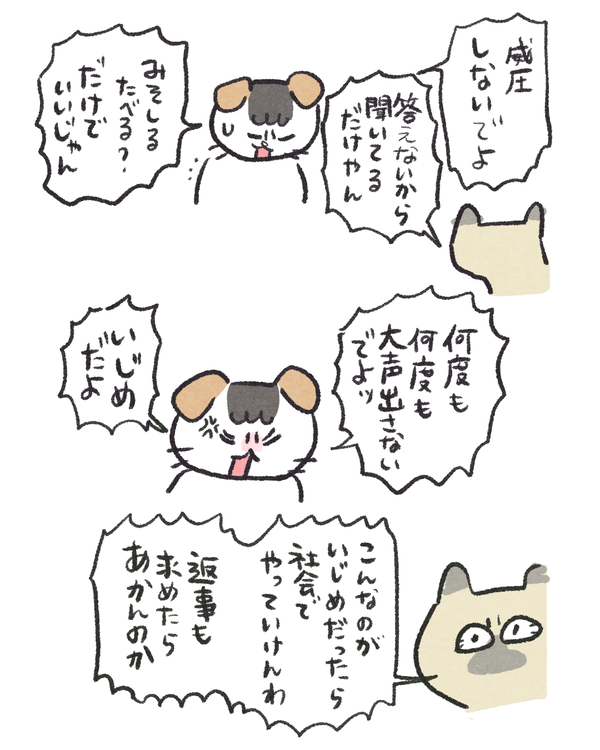 威圧
しないでよ
答えないから
聞いてる
だけやん
みそしる
たべる?
だけで
いいじゃん
何度も
何度も
大声出さない
でよッ
いじめ
だよ
こんなのが
いじめだったら
社会で
やっていけんわ
返事も
求めたら
あかんのか